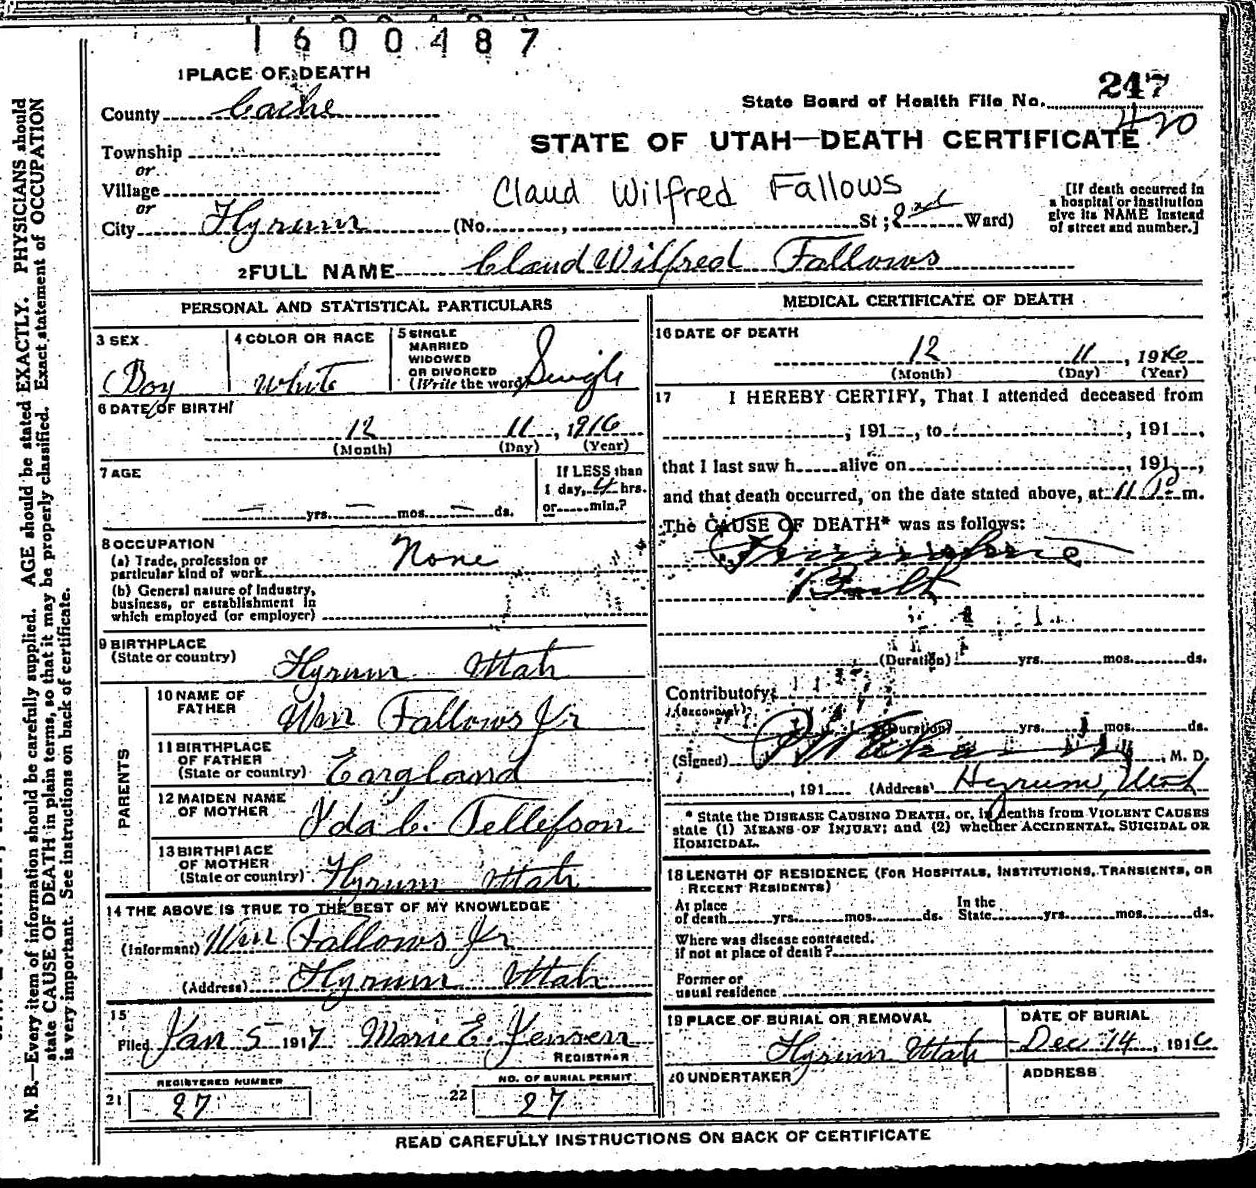 1600487
1 PLACE OF DEATH
247
County Cache
State Board of Health File No.
420
STATE OF UTAH—DEATH CERTIFICATE
Township
or
Village
Claud Wilfred Fallows
[If death occurred in
a hospital or institution
give its NAME instead
of street and number.]
or
City Hyrum (No. , St; 2nd Ward)
2 FULL NAME Claud Wilfred Fallows
PERSONAL AND STATISTICAL PARTICULARS
3 SEX Boy
4 COLOR OR RACE White
5 SINGLE
MARRIED
WIDOWED
OR DIVORCED
(Write the word) Single
6 DATE OF BIRTH
12 11, 1916
(Month) (Day) (Year)
7 AGE
yrs. mos. ds.
If LESS than
1 day, 4 hrs.
or min.?
8 OCCUPATION None
(a) Trade, profession or
particular kind of work
(b) General nature of industry,
business, or establishment in
which employed (or employer)
9 BIRTHPLACE
(State or country) Hyrum Utah
PARENTS
10 NAME OF
FATHER Wm Fallows Jr
11 BIRTHPLACE
OF FATHER
(State or country) England
12 MAIDEN NAME
OF MOTHER Yda C. Tellefson
13 BIRTHPLACE
OF MOTHER
(State or country) Hyrum Utah
14 THE ABOVE IS TRUE TO THE BEST OF MY KNOWLEDGE
(Informant) Wm Fallows Jr
(Address) Hyrum Utah
15
Filed Jan 5 1917 Marie E. Jensen
REGISTRAR
REGISTERED NUMBER
21 27
NO. OF BURIAL PERMIT
22 27
MEDICAL CERTIFICATE OF DEATH
16 DATE OF DEATH
12 11, 1916
(Month) (Day) (Year)
17 I HEREBY CERTIFY, That I attended deceased from
, 191 , to , 191 ,
that I last saw h alive on , 191 ,
and that death occurred, on the date stated above, at 11 P m.
The CAUSE OF DEATH* was as follows:
Birth
(Duration) yrs. mos. ds.
Contributory
(SECONDARY)
(Duration) yrs. mos. ds.
(Signed) , M. D.
, 191 (Address) Hyrum, Utah
* State the DISEASE CAUSING DEATH, or, in deaths from VIOLENT CAUSES
state (1) MEANS OF INJURY; and (2) whether ACCIDENTAL, SUICIDAL OR
HOMICIDAL.
18 LENGTH OF RESIDENCE (FOR HOSPITALS, INSTITUTIONS, TRANSIENTS, OR
RECENT RESIDENTS)
At place
of death yrs. mos. ds.
In the
State yrs. mos. ds.
Where was disease contracted,
if not at place of death?
Former or
usual residence
19 PLACE OF BURIAL OR REMOVAL
Hyrum Utah
DATE OF BURIAL
Dec 14, 1916
20 UNDERTAKER
ADDRESS
READ CAREFULLY INSTRUCTIONS ON BACK OF CERTIFICATE
N. B.—Every item of information should be carefully supplied. AGE should be stated EXACTLY. PHYSICIANS should
state CAUSE OF DEATH in plain terms, so that it may be properly classified. Exact statement of OCCUPATION
is very important. See instructions on back of certificate.